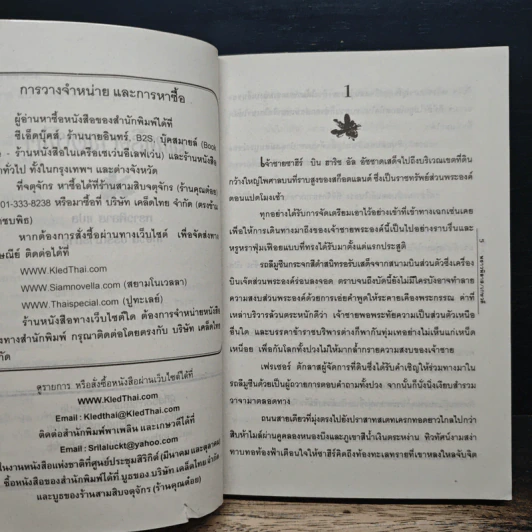 การวางจำหน่าย และการหาซื้อ
ผู้อ่านหาซื้อหนังสือของสำนักพิมพ์ได้ที่
ซีเอ็ดบุ๊คส์, ร้านนายอินทร์, B2S, บุ๊คสมายล์ (Book
- ร้านหนังสือในเครือเซเว่นอีเลฟเว่น) และร้านหนังสือ
ทั่วไป ทั้งในกรุงเทพฯ และต่างจังหวัด
ที่จตุจักร หาซื้อได้ที่ร้านสามสิบจตุจักร (ร้านคุณต้อย)
01-333-8238 หรือมาซื้อที่ บริษัท เคล็ดไทย จำกัด (ตรงข้าม
หากต้องการสั่งซื้อผ่านทางเว็บไซต์ เพื่อจัดส่งทาง
ติดต่อได้ที่
WWW.KledThai.com
WWW.Siamnovella.com (สยามโนเวลลา)
WWW.Thaispecial.com (ปูทะเลย์)
ร้านหนังสือทางเว็บไซต์ใด ต้องการจำหน่ายหนังสือ
ทางสำนักพิมพ์ กรุณาติดต่อโดยตรงกับ บริษัท เคล็ดไทย
ดูรายการ หรือสั่งซื้อหนังสือผ่านเว็บไซต์ได้ที่
WWW.KledThai.com
Email : Kledthai@KledThai.com
ติดต่อสำนักพิมพ์พาเพลิน และเกษวดีได้ที่
Email : Srilaluckt@yahoo.com
ในงานหนังสือแห่งชาติที่ศูนย์ประชุมสิริกิติ์ (มีนาคม และตุลาคม)
ซื้อหนังสือของสำนักพิมพ์ได้ที่ บูธของ บริษัท เคล็ดไทย จำกัด
และบูธของร้านสามสิบจตุจักร (ร้านคุณต้อย)
1
เจ้าชายชาฮีร์ บิน ฮารัช อัล อัชชาดเสด็จไปถึงบริเวณเขตที่ดิน
กว้างใหญ่ไพศาลบนที่ราบสูงของสก็อตแลนด์ ซึ่งเป็นราชทรัพย์ส่วนพระองค์
ตอนแปดโมงเช้า
ทุกอย่างได้รับการจัดเตรียมเอาไว้อย่างเช้าที่เช้าทางเฉกเช่นเคย
เพื่อให้การเดินทางมาถึงของเจ้าชายพระองค์นี้เป็นไปอย่างราบรื่นและ
หรูหราฟุ่มเฟือยแบบที่ทรงได้รับมาตั้งแต่แรกประสูติ
รถลีมูซีนกระจกสีดำสนิทรอรับเสด็จจากสนามบินส่วนตัวซึ่งเครื่อง
บินเจ็ตส่วนพระองค์ร่อนลงจอด ตราบจนถึงบัดนี้ยังไม่มีใครบังอาจทำลาย
ความสงบส่วนพระองค์ด้วยการเอ่ยคำพูดให้ระคายเคืองพระกรรณ ค่าที่
เหล่าบริวารล้วนตระหนักดีว่า เจ้าชายพอพระทัยความเป็นส่วนตัวเหนือ
อื่นใด และบรรดาข้าราชบริพารต่างก็พากันทุ่มเทอย่างไม่เห็นแก่เหน็ด
เหนื่อย เพื่อกันโลกทั้งปวงไม่ให้มากล้ำกรายความสงบของเจ้าชาย
เฟรเซอร์ ดักลาสผู้จัดการที่ดินซึ่งได้รับคำเชิญให้ร่วมทางมาใน
รถลีมูซีนด้วยเป็นผู้ถวายการตอบคำถามทั้งปวง จากนั้นก็นั่งนิ่งเงียบสำรวม
วาจามาตลอดทาง
ถนนสายเดียวที่มุ่งตรงไปยังปราสาทสเตทเครกทอดยาวไกลไปกว่า
สิบห้าไมล์ผ่านคูคลองหนองบึงและภูเขาสีน้ำเงินตระหง่าน ทิวทัศน์งามสง่า
ทาบทอท้องฟ้าเตือนใจให้ชาฮีร์คิดถึงท้องทะเลทรายที่เขาหลงใหลจับจิต